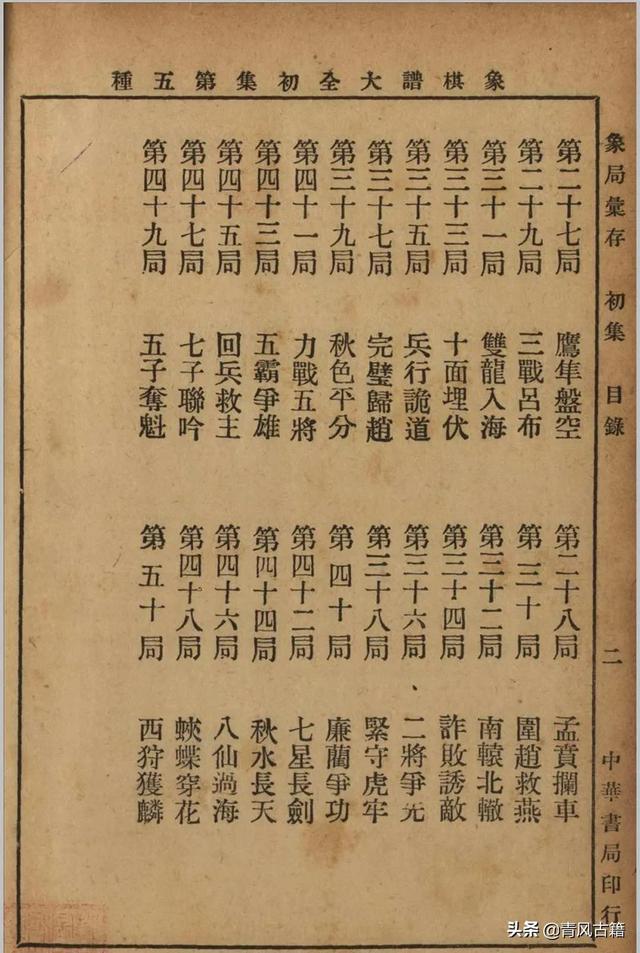 象棋譜大全初集第五種
象局彙存 初集 目錄 二 中華書局印行
第二十七局 鷹隼盤空 第二十八局 孟賁攔車
第二十九局 三戰呂布 第三十局 圍趙救燕
第三十一局 雙龍入海 第三十二局 南轅北轍
第三十三局 十面埋伏 第三十四局 詐敗誘敵
第三十五局 兵行詭道 第三十六局 二將爭先
第三十七局 完璧歸趙 第三十八局 緊守虎牢
第三十九局 秋色平分 第四十局 廉藺爭功
第四十一局 力戰五將 第四十二局 七星長劍
第四十三局 五霸爭雄 第四十四局 秋水長天
第四十五局 回兵救主 第四十六局 八仙過海
第四十七局 七子聯吟 第四十八局 蛺蝶穿花
第四十九局 五子奪魁 第五十局 西狩獲麟
头条 @青风古籍